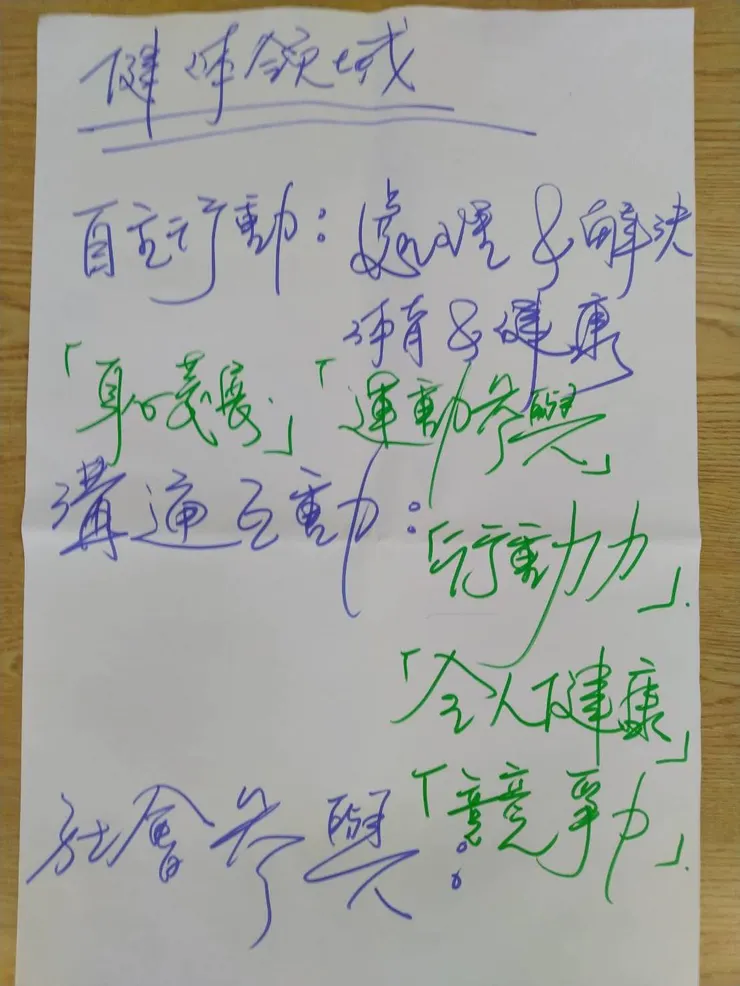 健体領域
自主行動：處理&解決
体育&健康
「身心發展」「運動參與」
溝通互動：
「行動力」.
「全人健康」
「競爭力」.
社會參與：